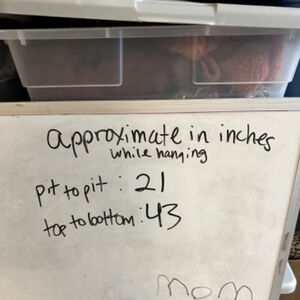 approximate in inches
while hanging
pit to pit : 21
top to bottom : 43
mom